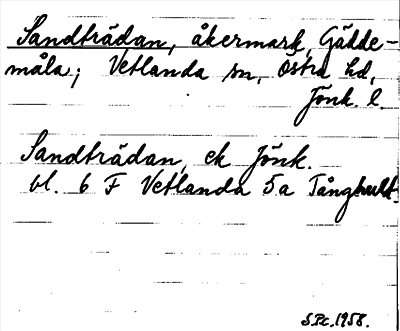 Sandträdan, åkermark, Gädde-
måla; Vetlanda sn, Östra hd,
Jönk. l.
Sandträdan, ek Jönk.
bl. 6 F Vetlanda 5a Tånghult.
S.Pc. 1958.